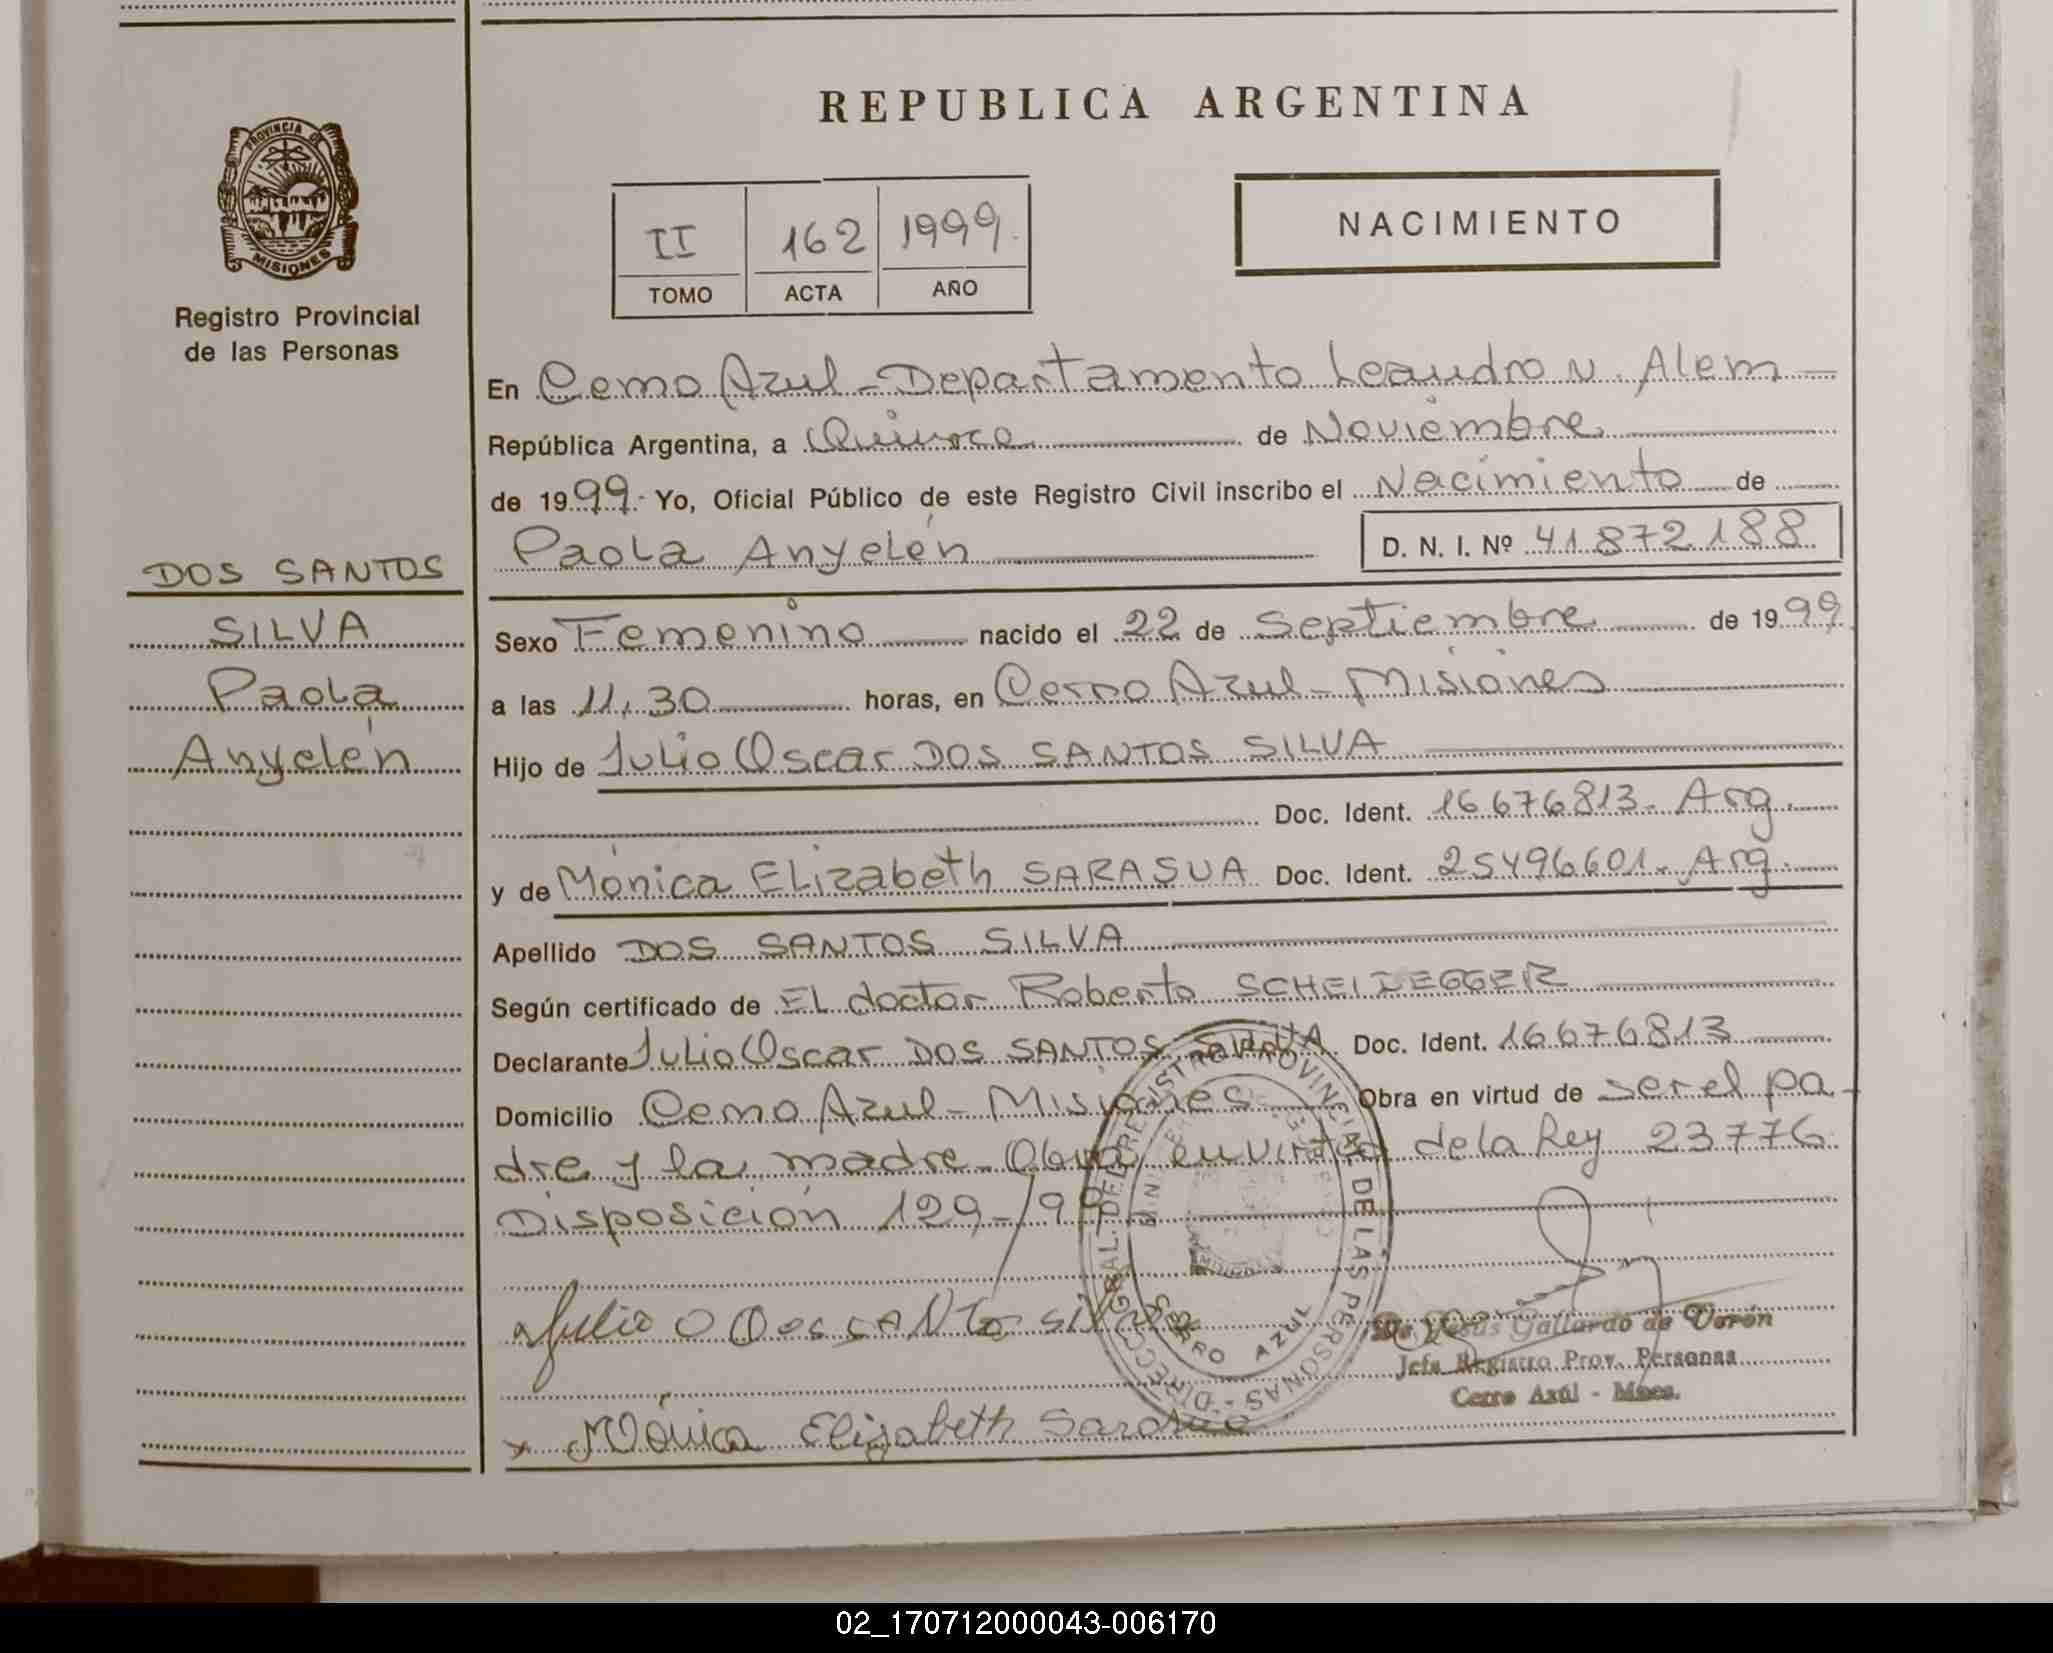 REPUBLICA ARGENTINA
PROVINCIA DE
MISIONES
Registro Provincial
de las Personas
II 162 1999.
TOMO ACTA AÑO
NACIMIENTO
DOS SANTOS
SILVA
Paola
Anyelén
En Cerro Azul - Departamento Leandro N. Alem
República Argentina, a Quince de Noviembre
de 1999. Yo, Oficial Público de este Registro Civil inscribo el Nacimiento de
Paola Anyelén D. N. I. Nº 41872188
Sexo Femenino nacido el 22 de Septiembre de 1999
a las 11,30 horas, en Cerro Azul - Misiones
Hijo de Julio Oscar DOS SANTOS SILVA
Doc. Ident. 16676813- Arg.
y de Mónica Elizabeth SARASUA Doc. Ident. 25496601- Arg.
Apellido DOS SANTOS SILVA
Según certificado de EL doctor Roberto SCHEIDEGGER
Declarante Julio Oscar DOS SANTOS SILVA Doc. Ident. 16676813
Domicilio Cerro Azul - Misiones Obra en virtud de ser el pa-
dre y la madre. Obra en virtud de la Ley 23776
Disposición 129-/99
DIRECC. GRAL. DEL REGISTRO PROVINCIAL DE LAS PERSONAS -
CERRO AZUL
Julio O Dos SANTOS SILVA
Gallardo de Verón
Jefe Registro Prov. Personas
Cerro Azúl - Mnes.
x Mónica Elizabeth Sarasua
02_170712000043-006170